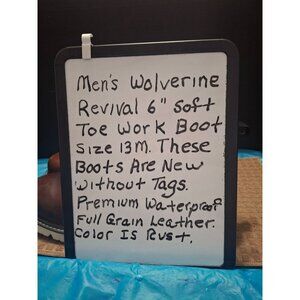 Men's Wolverine
Revival 6" Soft
Toe Work Boot
Size 13M. These
Boots Are New
Without Tags.
Premium Waterproof
Full Grain Leather.
Color Is Rust.